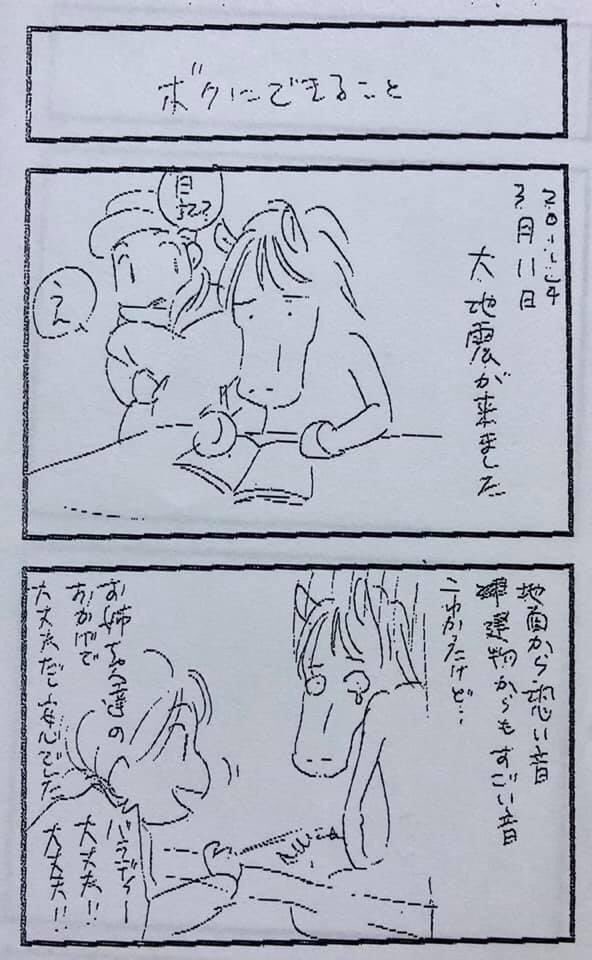 ボクにできること
2011年
3月11日
大地震が来ました
え、
地面から恐い音
建物からもすごい音
こわかったけど・・
お姉さん達の
おかげで
大丈夫だし安心でした
バラディー
大丈夫!!
大丈夫!!